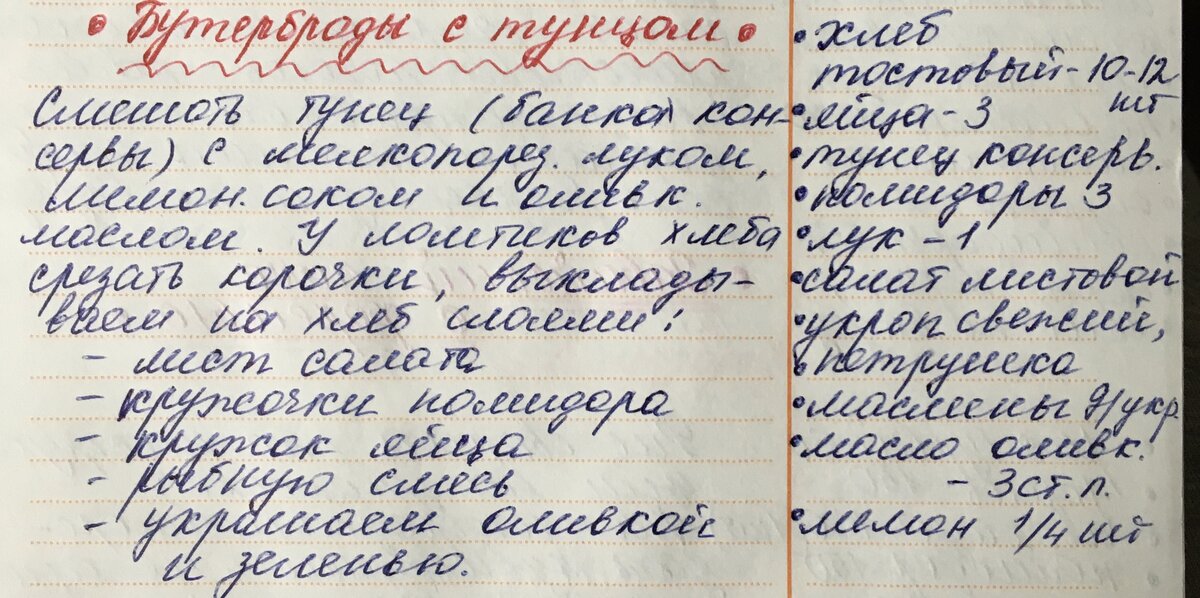 • Бутерброды с тунцом •
Смешать тунец (банка кон-
сервы) с мелкопорез. луком,
лимон. соком и оливк.
маслом. У ломтиков хлеба
срезать корочки, выклады-
ваем на хлеб слоями:
- лист салата
- кружочки помидора
- кружок яйца
- рыбную смесь
- украшаем оливкой
и зеленью.
• хлеб
тостовый - 10-12
шт
• яйца - 3
• тунец консерв.
• помидоры 3
• лук - 1
• салат листовой
• укроп свежий,
• петрушка
• маслины д/укр
• масло оливк.
- 3 ст. л.
• лимон 1/4 шт